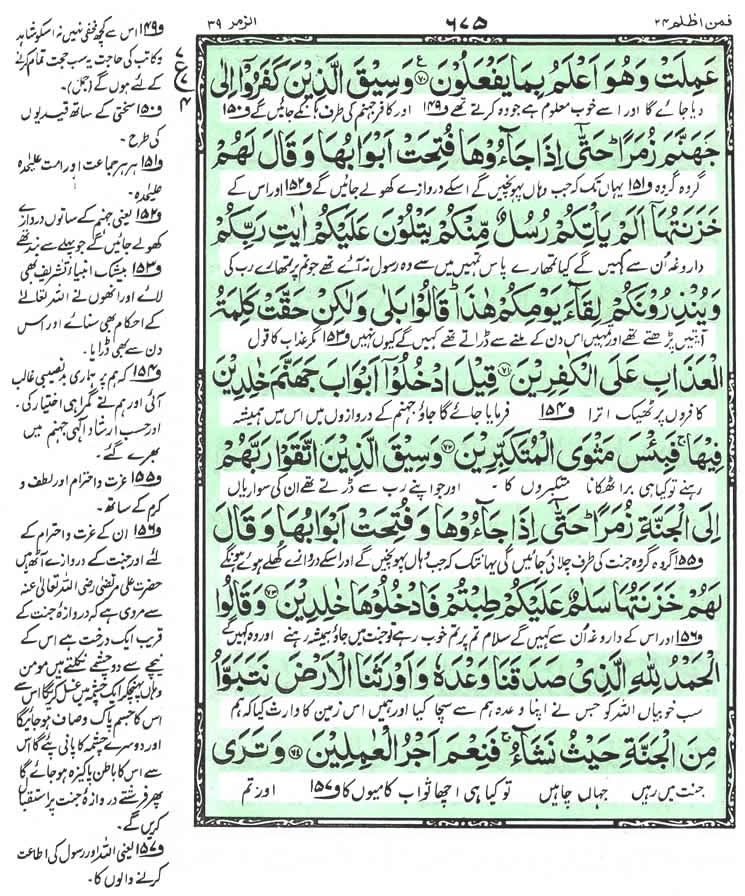 فمن اظلم ۲۴
۶۷۵
الزمر ۳۹
عَمِلَتْ وَهُوَ اَعْلَمُ بِمَا يَفْعَلُوْنَ ﴿۷۰﴾ وَسِيْقَ الَّذِيْنَ كَفَرُوْۤا اِلٰى
دیا جائے گا اور اسے خوب معلوم ہے جو وہ کرتے تھے ف۱۴۹ اور کافر جہنم کی طرف ہانکے جائیں گے ف۱۵۰
جَهَنَّمَ زُمَرًا ؕ حَتّٰۤى اِذَا جَآءُوْهَا فُتِحَتْ اَبْوَابُهَا وَ قَالَ لَهُمْ
گروہ گروہ ف۱۵۱ یہاں تک کہ جب وہاں پہونچیں گے اسکے دروازے کھولے جائیں گے ف۱۵۲ اور اس کے
خَزَنَتُهَاۤ اَلَمْ يَاْتِكُمْ رُسُلٌ مِّنْكُمْ يَتْلُوْنَ عَلَيْكُمْ اٰيٰتِ رَبِّكُمْ
داروغہ اُن سے کہیں گے کیا تمھارے پاس تمہیں میں سے وہ رسول نہ آئے تھے جو تم پر تمھارے رب کی
وَيُنْذِرُوْنَكُمْ لِقَآءَ يَوْمِكُمْ هٰذَا ؕ قَالُوْا بَلٰى وَلٰكِنْ حَقَّتْ كَلِمَةُ
آیتیں پڑھتے تھے اور تمہیں اس دن کے ملنے سے ڈراتے تھے کہیں گے کیوں نہیں ف۱۵۳ مگر عذاب کا قول
الْعَذَابِ عَلَى الْكٰفِرِيْنَ ﴿۷۱﴾ قِيْلَ ادْخُلُوْۤا اَبْوَابَ جَهَنَّمَ خٰلِدِيْنَ
کافروں پر ٹھیک اترا ف۱۵۴ فرمایا جائے گا جاؤ جہنم کے دروازوں میں اس میں ہمیشہ
فِيْهَا ۚ فَبِئْسَ مَثْوَى الْمُتَكَبِّرِيْنَ ﴿۷۲﴾ وَسِيْقَ الَّذِيْنَ اتَّقَوْا رَبَّهُمْ
رہنے تو کیا ہی برا ٹھکانا متکبروں کا ۔ اور جو اپنے رب سے ڈرتے تھے ان کی سواریاں
اِلَى الْجَنَّةِ زُمَرًا ؕ حَتّٰۤى اِذَا جَآءُوْهَا وَ فُتِحَتْ اَبْوَابُهَا وَ قَالَ
ف۱۵۵ گروہ گروہ جنت کی طرف چلائی جائیں گی یہاں تک کہ جب وہاں پہونچیں گے اور اسکے دروازے کھلے ہوئے ہونگے
لَهُمْ خَزَنَتُهَا سَلٰمٌ عَلَيْكُمْ طِبْتُمْ فَادْخُلُوْهَا خٰلِدِيْنَ ﴿۷۳﴾ وَ قَالُوا
ف۱۵۶ اور اس کے داروغہ اُن سے کہیں گے سلام تم پر تم خوب رہے تو جنت میں جاؤ ہمیشہ رہنے اور وہ کہیں گے
الْحَمْدُ لِلّٰهِ الَّذِيْ صَدَقَنَا وَعْدَهٗ وَاَوْرَثَنَا الْاَرْضَ نَتَبَوَّاُ
سب خوبیاں اللہ کو جس نے اپنا وعدہ ہم سے سچا کیا اور ہمیں اس زمین کا وارث کیا کہ ہم
مِنَ الْجَنَّةِ حَيْثُ نَشَآءُ ۚ فَنِعْمَ اَجْرُ الْعٰمِلِيْنَ ﴿۷۴﴾ وَ تَرَى
جنت میں رہیں جہاں چاہیں تو کیا ہی اچھا ثواب کامیوں کا ف۱۵۷ اور تم
ف۱۴۹ اس سے کچھ مخفی نہیں نہ اسکو شاہد
و کاتب کی حاجت یہ سب حجت تمام کرنے
کے لئے ہوں گے (جمل)۔
ف۱۵۰ سختی کے ساتھ قیدیوں
کی طرح ۔
ف۱۵۱ ہر ہر جماعت اور امت علیحدہ
علیحدہ ۔
ف۱۵۲ یعنی جہنم کے ساتوں دروازے
کھولے جائیں گے جو پہلے سے بند تھے
ف۱۵۳ بیشک انبیاء تشریف بھی
لائے اور انھوں نے اللہ تعالیٰ
کے احکام بھی سنائے اور اس
دن سے بھی ڈرایا ۔
ف۱۵۴ کہ ہم پر ہماری بدنصیبی غالب
آئی اور ہم نے گمراہی اختیار کی ۔
اور حسب ارشاد الٰہی جہنم میں
بھرے گئے ۔
ف۱۵۵ عزت و احترام اور لطف و
کرم کے ساتھ ۔
ف۱۵۶ ان کے عزت و احترام کے
لئے اور جنت کے دروازے آٹھ ہیں
حضرت علی مرتضیٰ رضی اللہ تعالیٰ عنہ
سے مروی ہے کہ دروازۂ جنت کے
قریب ایک درخت ہے اس کے
نیچے سے دو چشمے نکلتے ہیں مومن
وہاں پہنچکر ایک چشمہ میں غسل کریگا اس سے
اس کا جسم پاک و صاف ہو جائیگا
اور دوسرے چشمہ کا پانی پئے گا اس
سے اس کا باطن پاکیزہ ہو جائے گا
پھر فرشتے دروازۂ جنت پر استقبال
کریں گے ۔
ف۱۵۷ یعنی اللہ اور رسول کی اطاعت
کرنے والوں کا ۔